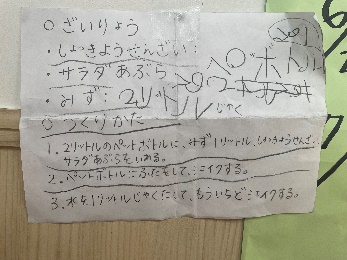 ○ざいりょう
・しょっきようせんざい:
・サラダあぶら
・みず: 2リットルじゃく
ペットボトル
○つくりかた
1. 2リットルのペットボトルに、みず1リットル、しょっきようせんざい、
サラダあぶらをいれる。
2. ペットボトルにふたをして、シェイクする。
3. 水を1リットルじゃくたして、もういちどシェイクする。
6
7